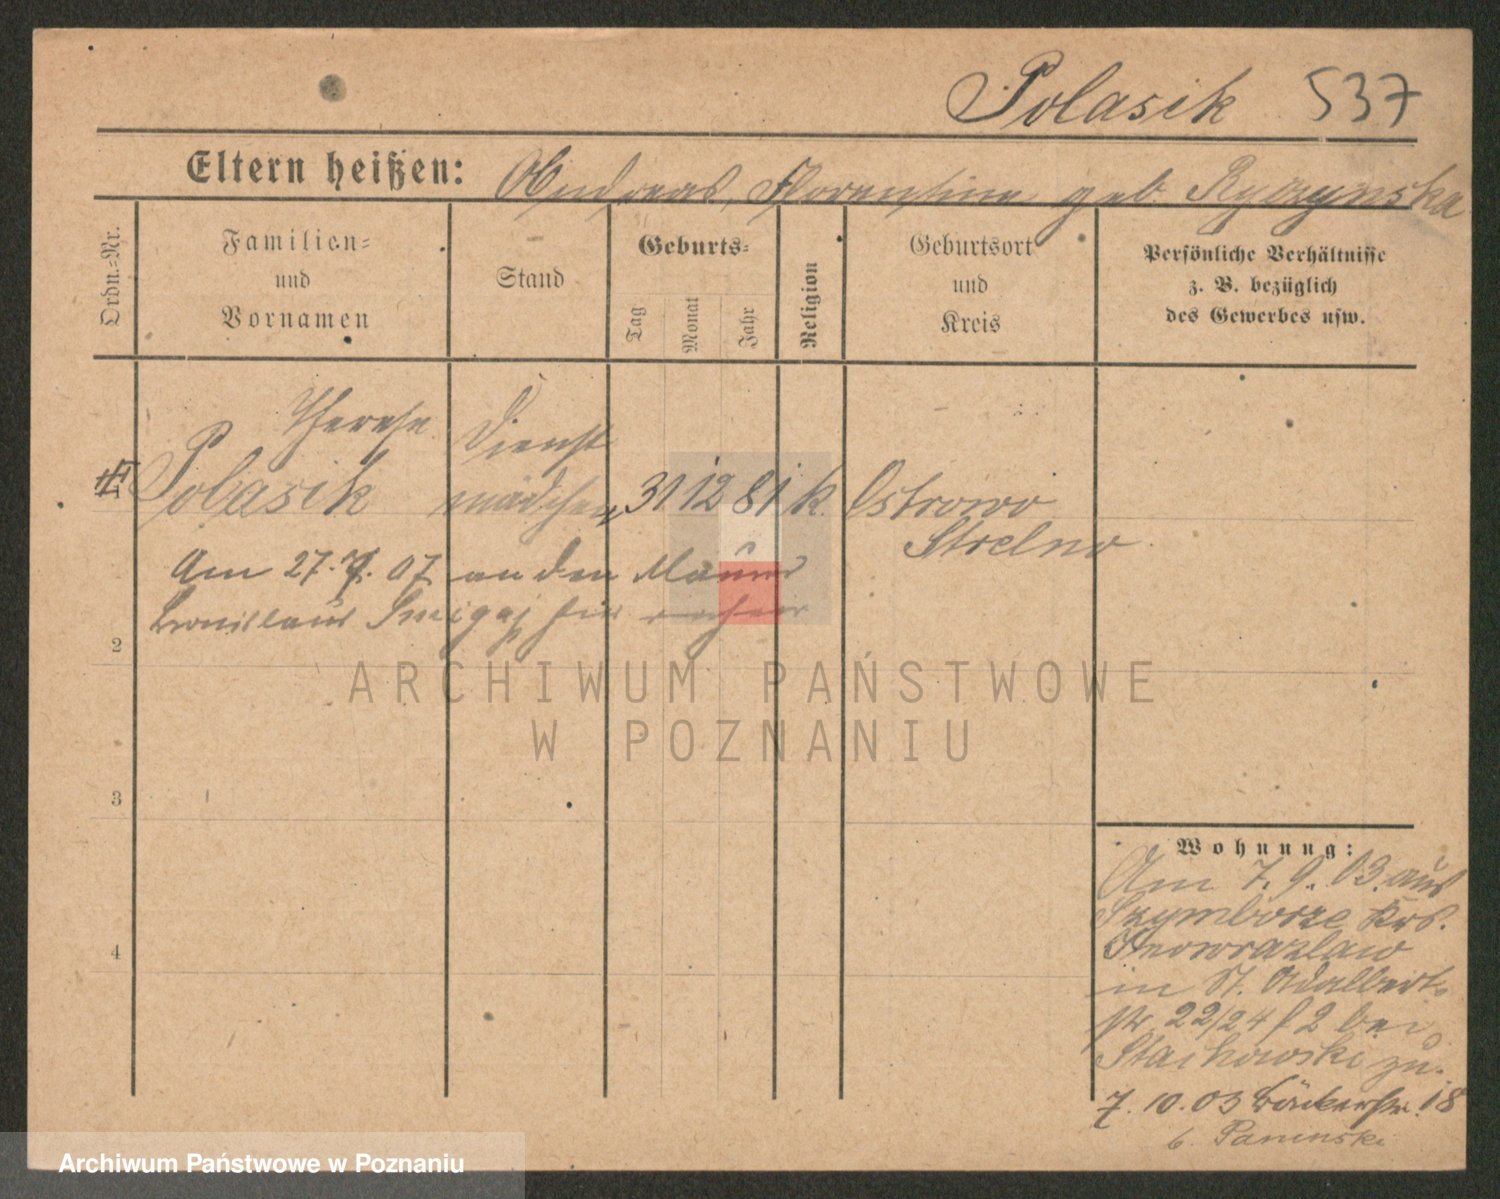 Polasik 537
Eltern heißen: Andreas, Florentine geb. Ryczynska
Ordn.-Nr.
Familien-
und
Vornamen
Stand
Geburts-
Tag
Monat
Jahr
Religion
Geburtsort
und
Kreis
Persönliche Verhältnisse
z. B. bezüglich
des Gewerbes usw.
Therese Dienst
1 Polasik mädchen 31 12 81 k. Ostrowo
Strelno
Am 27. 7. 07 an den Maurer
Bronislaus Smigaj hier
2
ARCHIWUM PAŃSTWOWE
W POZNANIU
3
4
Wohnung:
Am 7. 9. 03. aus
Szymborze Krs.
Inowrazlaw
in St. Adalbert-
str 22/24 f 2 bei
Stachowski zu.
7. 10. 03 Bäckerstr. 18
b. Paninski
Archiwum Państwowe w Poznaniu